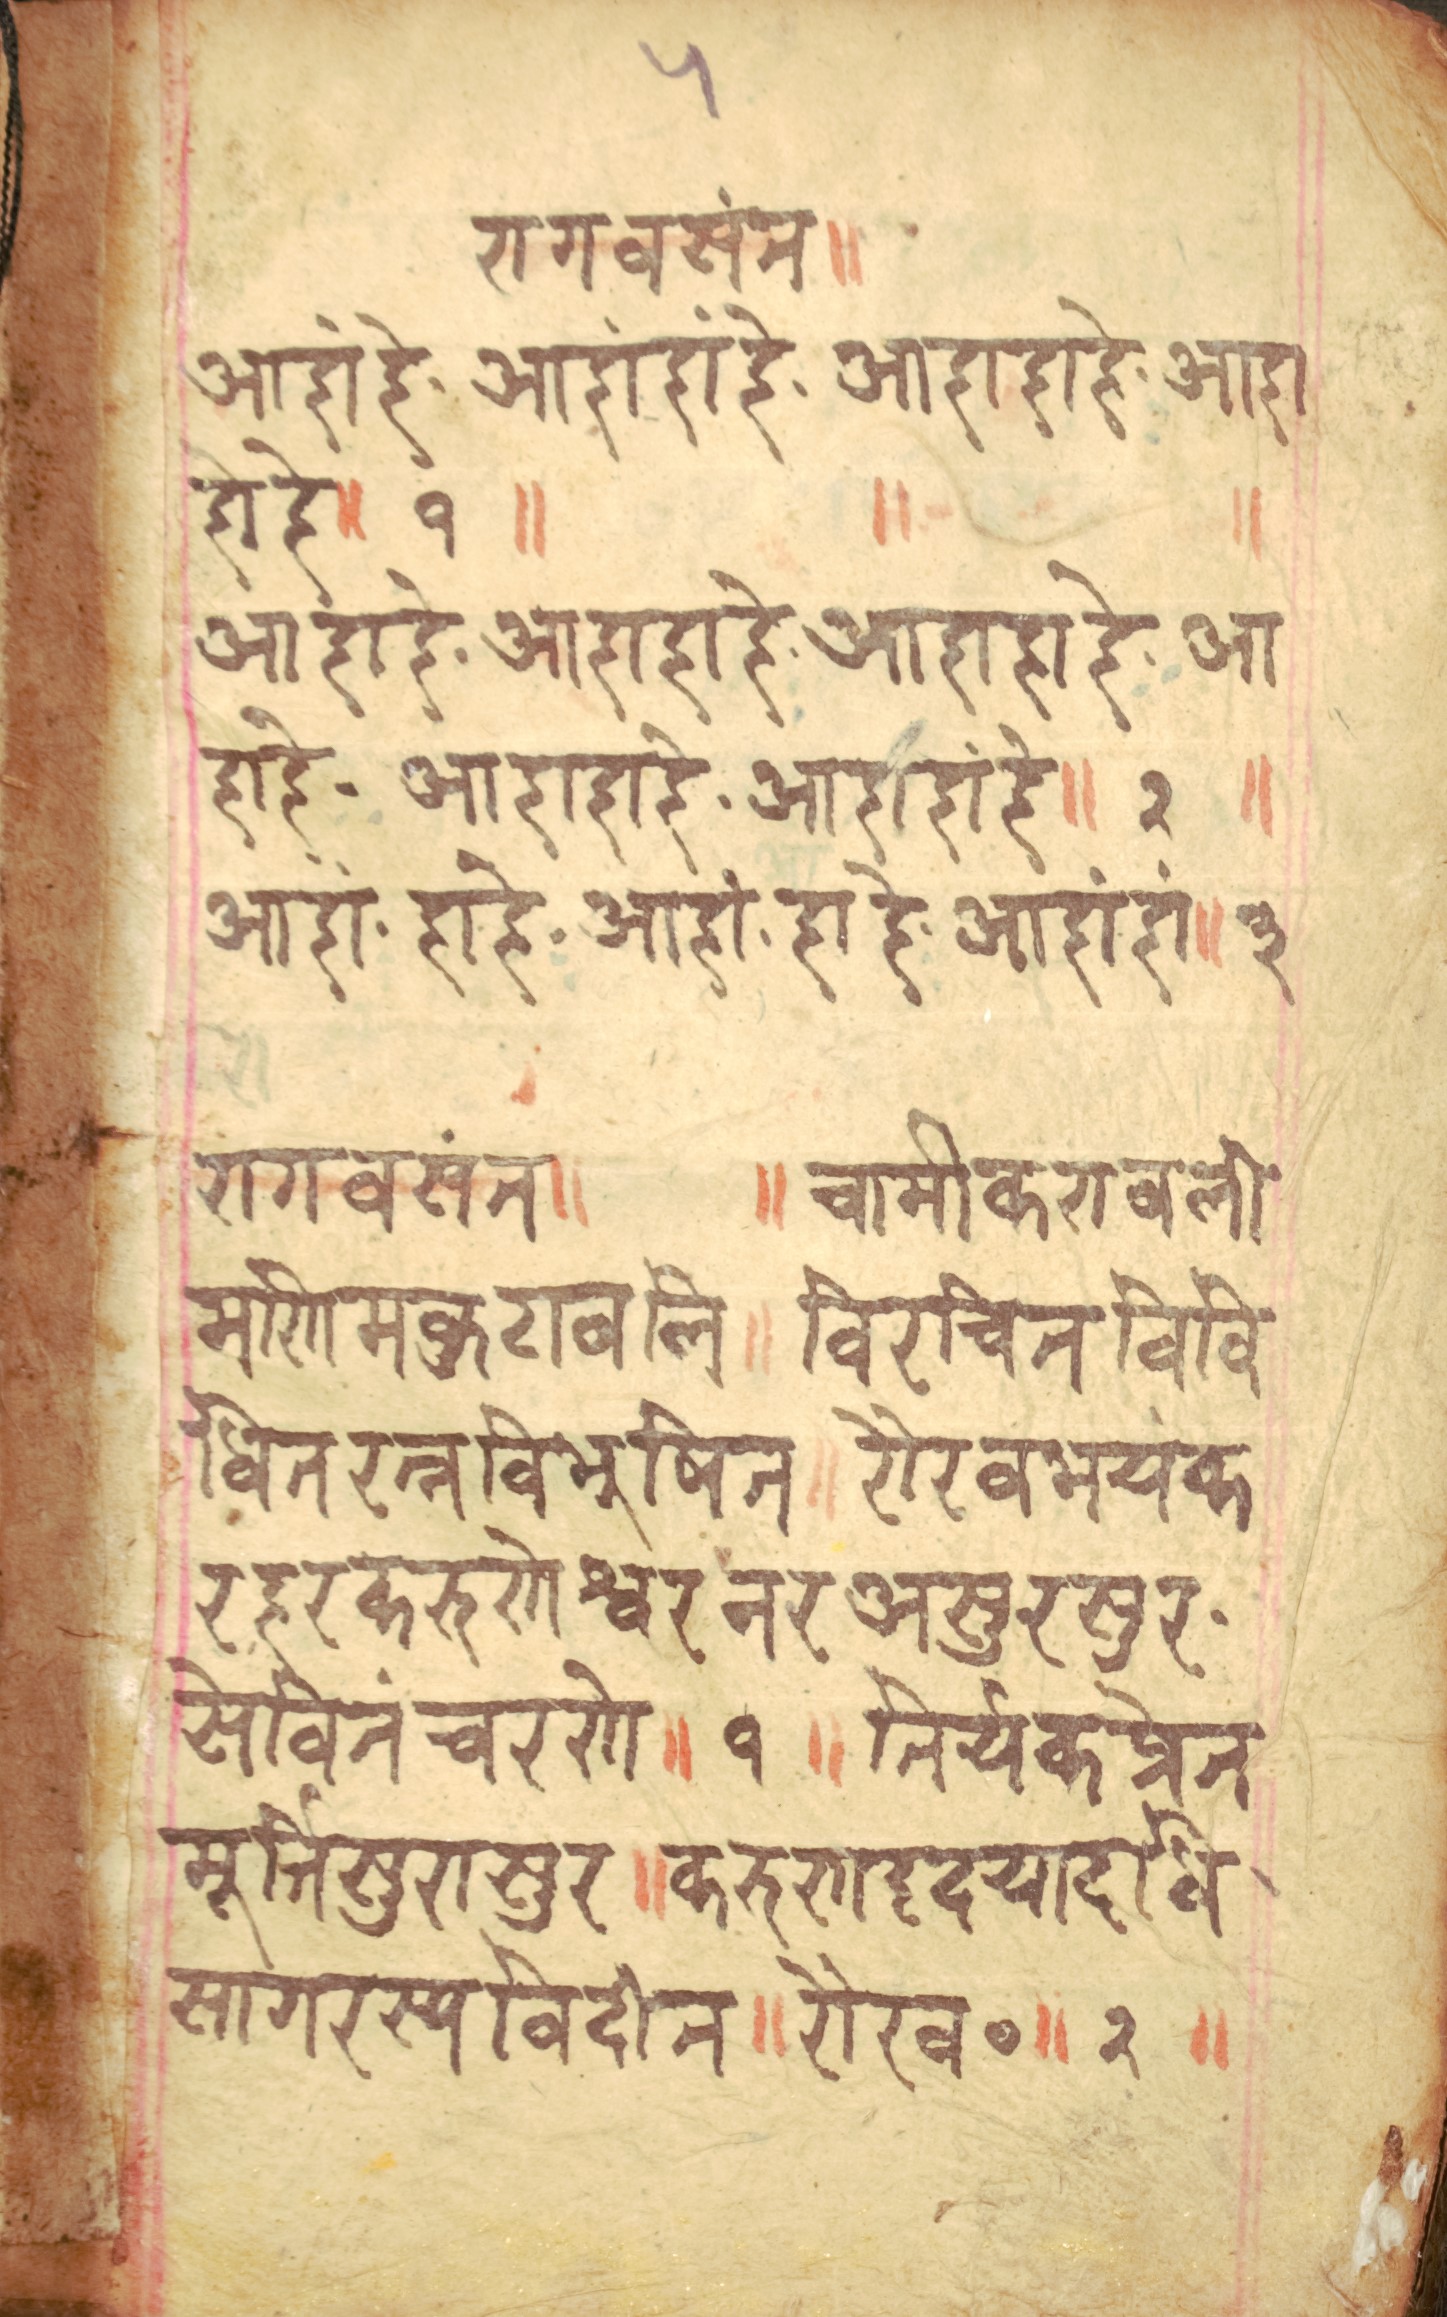 ५
रागवसंत॥
आहांहे· आहांहांहे· आहाहाहे· आहा
हाहे॥ १ ॥ ॥ ॥
आहांहे· आहाहाहे· आहाहाहे· आ
हाहे· आहाहाहे· आहाहांहे॥ २ ॥
आहां· हाहे· आहां· हाहे· आहांहां॥ ३
रागवसंत॥ ॥ चामीकरावली
मणिमकुटावलि॥ विरचित विवि
धितरत्नविभूषित॥ रौरवभयंक
रहरकरुणेश्वर नर असुरसुर·
सेवितं चरणे॥ १ ॥ तिर्यकप्रेत
मूर्त्तिसुरासुर॥ करुणाहृदयादधि
सागरस्पविदीन॥ रौरव०॥ २ ॥